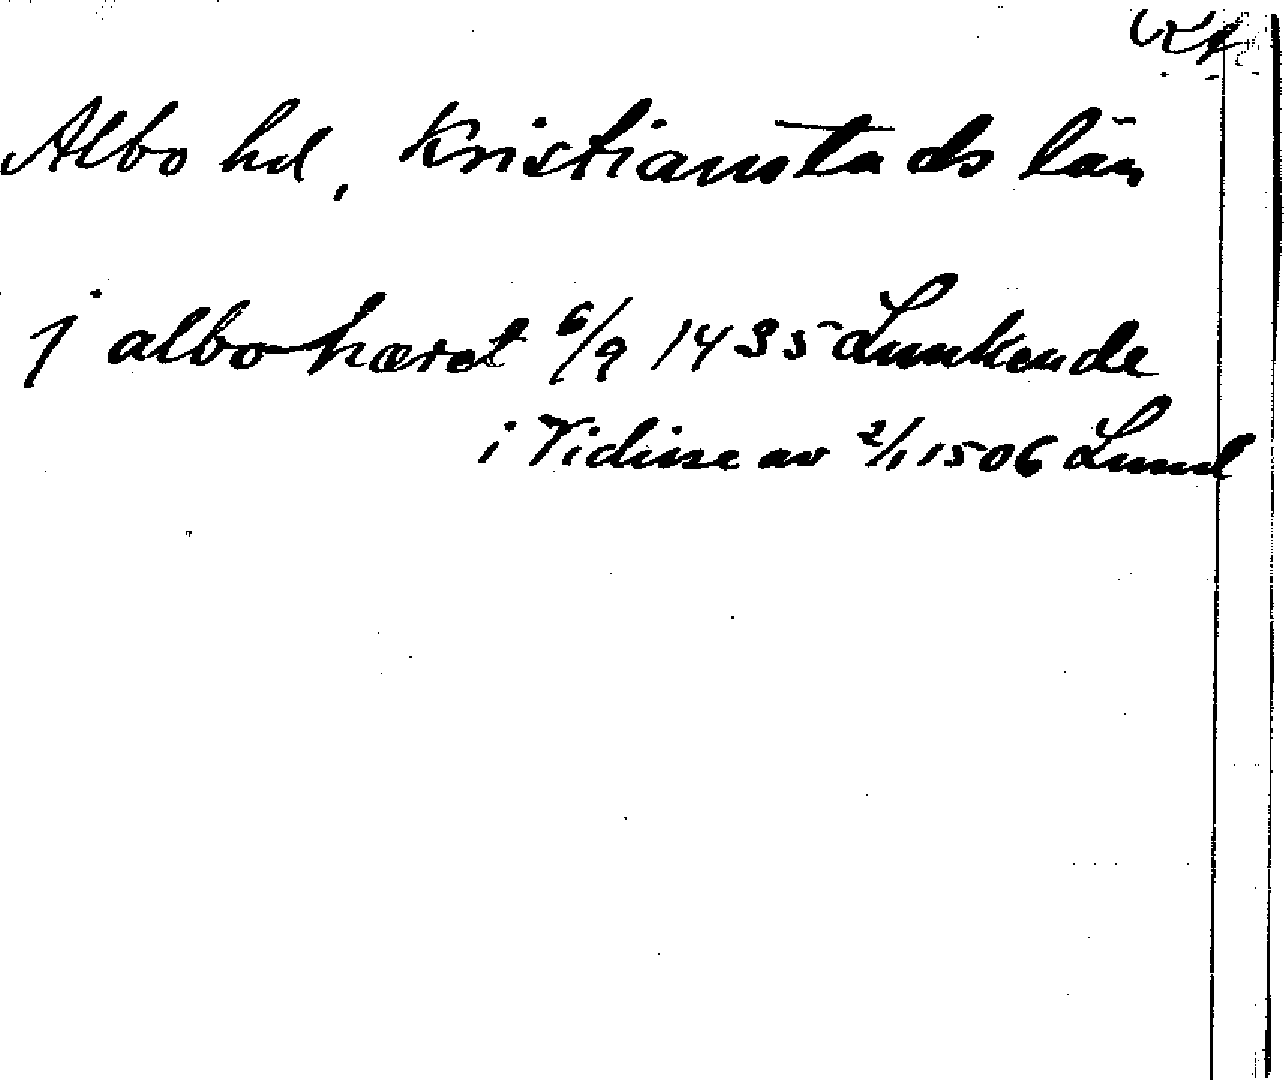 Albo hd, Kristianstads län
j albohæret 6/9 1435 Lunkende
i Vidisse av 2/1 1506 Lund